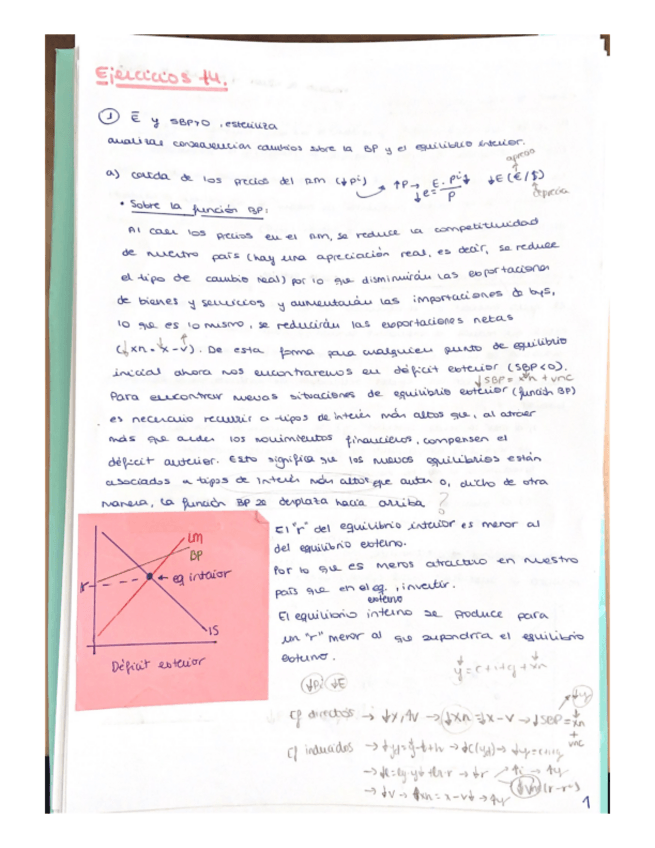 Ejercicios t4.
① Ē y SBP>0, esterniza
analizar consecuencias cambios sobre la BP y el equilibrio interior.
a) caída de los precios del RM (↓pi) → ↑P → ↓e = E·pi↓/P ↓E (€/$)
aprecia
deprecia
• Sobre la función BP:
Al caer los precios en el RM, se reduce la competitividad
de nuestro país (hay una apreciación real, es decir, se reduce
el tipo de cambio real) por lo que disminuirán las exportaciones
de bienes y servicios y aumentarán las importaciones de bys,
lo que es lo mismo, se reducirán las exportaciones netas
(↓xn = ↓x - v↑). De esta forma para cualquier punto de equilibrio
inicial ahora nos encontraremos en déficit exterior (SBP<0).
↓SBP = xn + vnc
Para encontrar nuevas situaciones de equilibrio exterior (función BP)
es necesario recurrir a tipos de interés más altos que, al atraer
más que antes los movimientos financieros, compensen el
déficit anterior. Esto significa que los nuevos equilibrios están
asociados a tipos de interés más altos que antes o, dicho de otra
manera, la función BP se desplaza hacia arriba ?
LM
BP
r
← eq interior
IS
Déficit exterior
El "r" del equilibrio interior es menor al
del equilibrio externo.
Por lo que es menos atractivo en nuestro
país que en el eq. externo, invertir.
El equilibrio interno se produce para
un "r" menor al que supondría el equilibrio
externo.
↓y = c+i+g+xn↓
↓Pi ↓E
Ef directos → ↓x, ↑v → ↓xn = ↓x - v → ↓SBP = xn + vnc
↓y
Ef inducidos → ↓yd = y - t + tr → ↓c(yd) → ↓y = c+i+g
→ ↓r → ↑i → ↑y
→ ↓v → ↑xn = x - v↓ → ↑y
1